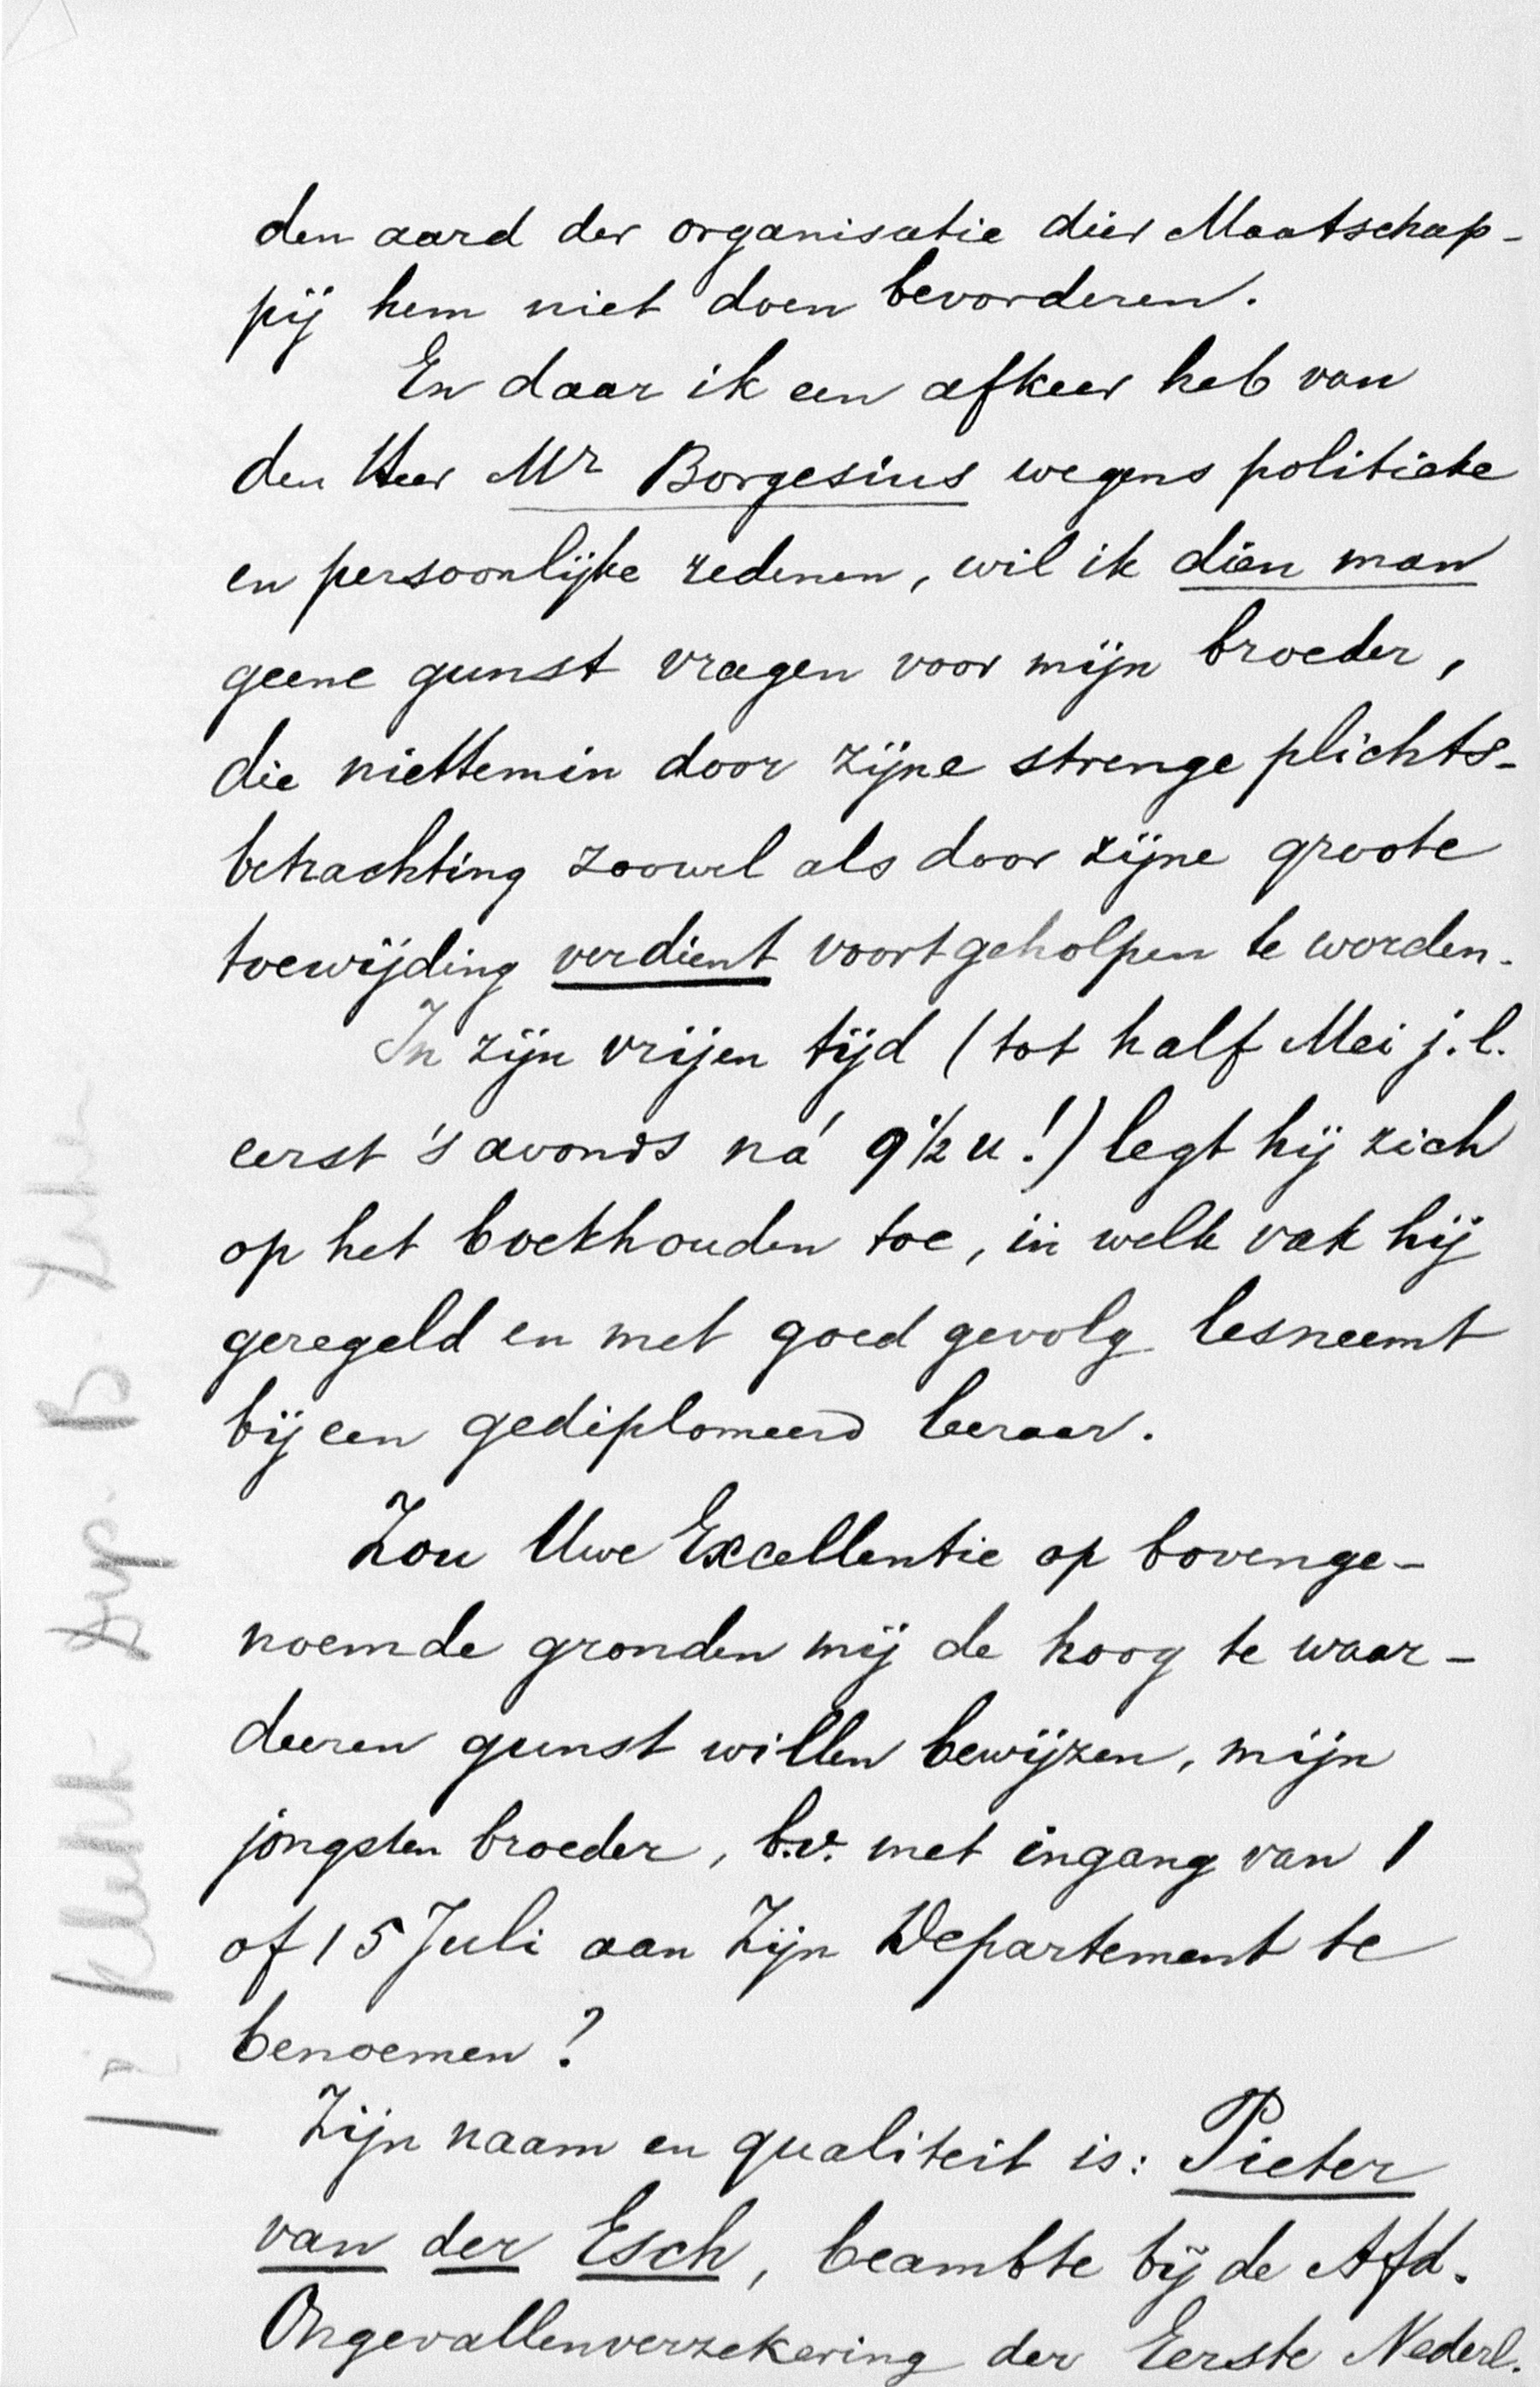 den aard der organisatie dier Maatschap-
pij hem niet doen bevorderen.
En daar ik een afkeer heb van
den Heer Mr Borgesius wegens politieke
en persoonlijke redenen, wil ik dien man
geene gunst vragen voor mijn broeder,
die niettemin door zijne strenge plichts-
betrachting zoowel als door zijne groote
toewijding verdient voortgeholpen te worden.
In zijn vrijen tijd (tot half Mei j.l.
eerst 's avonds ná 9½ u!) legt hij zich
op het boekhouden toe, in welk vak hij
geregeld en met goed gevolg lesneemt
bij een gediplomeerd leeraar.
Zou Uwe Excellentie op bovenge-
noemde gronden mij de hoog te waar-
deeren gunst willen bewijzen, mijn
jongsten broeder, b.v. met ingang van 1
of 15 Juli aan Zijn Departement te
benoemen?
Zijn naam en qualiteit is: Pieter
van der Esch, beambte bij de Afd.
Ongevallenverzekering der Eerste Nederl.